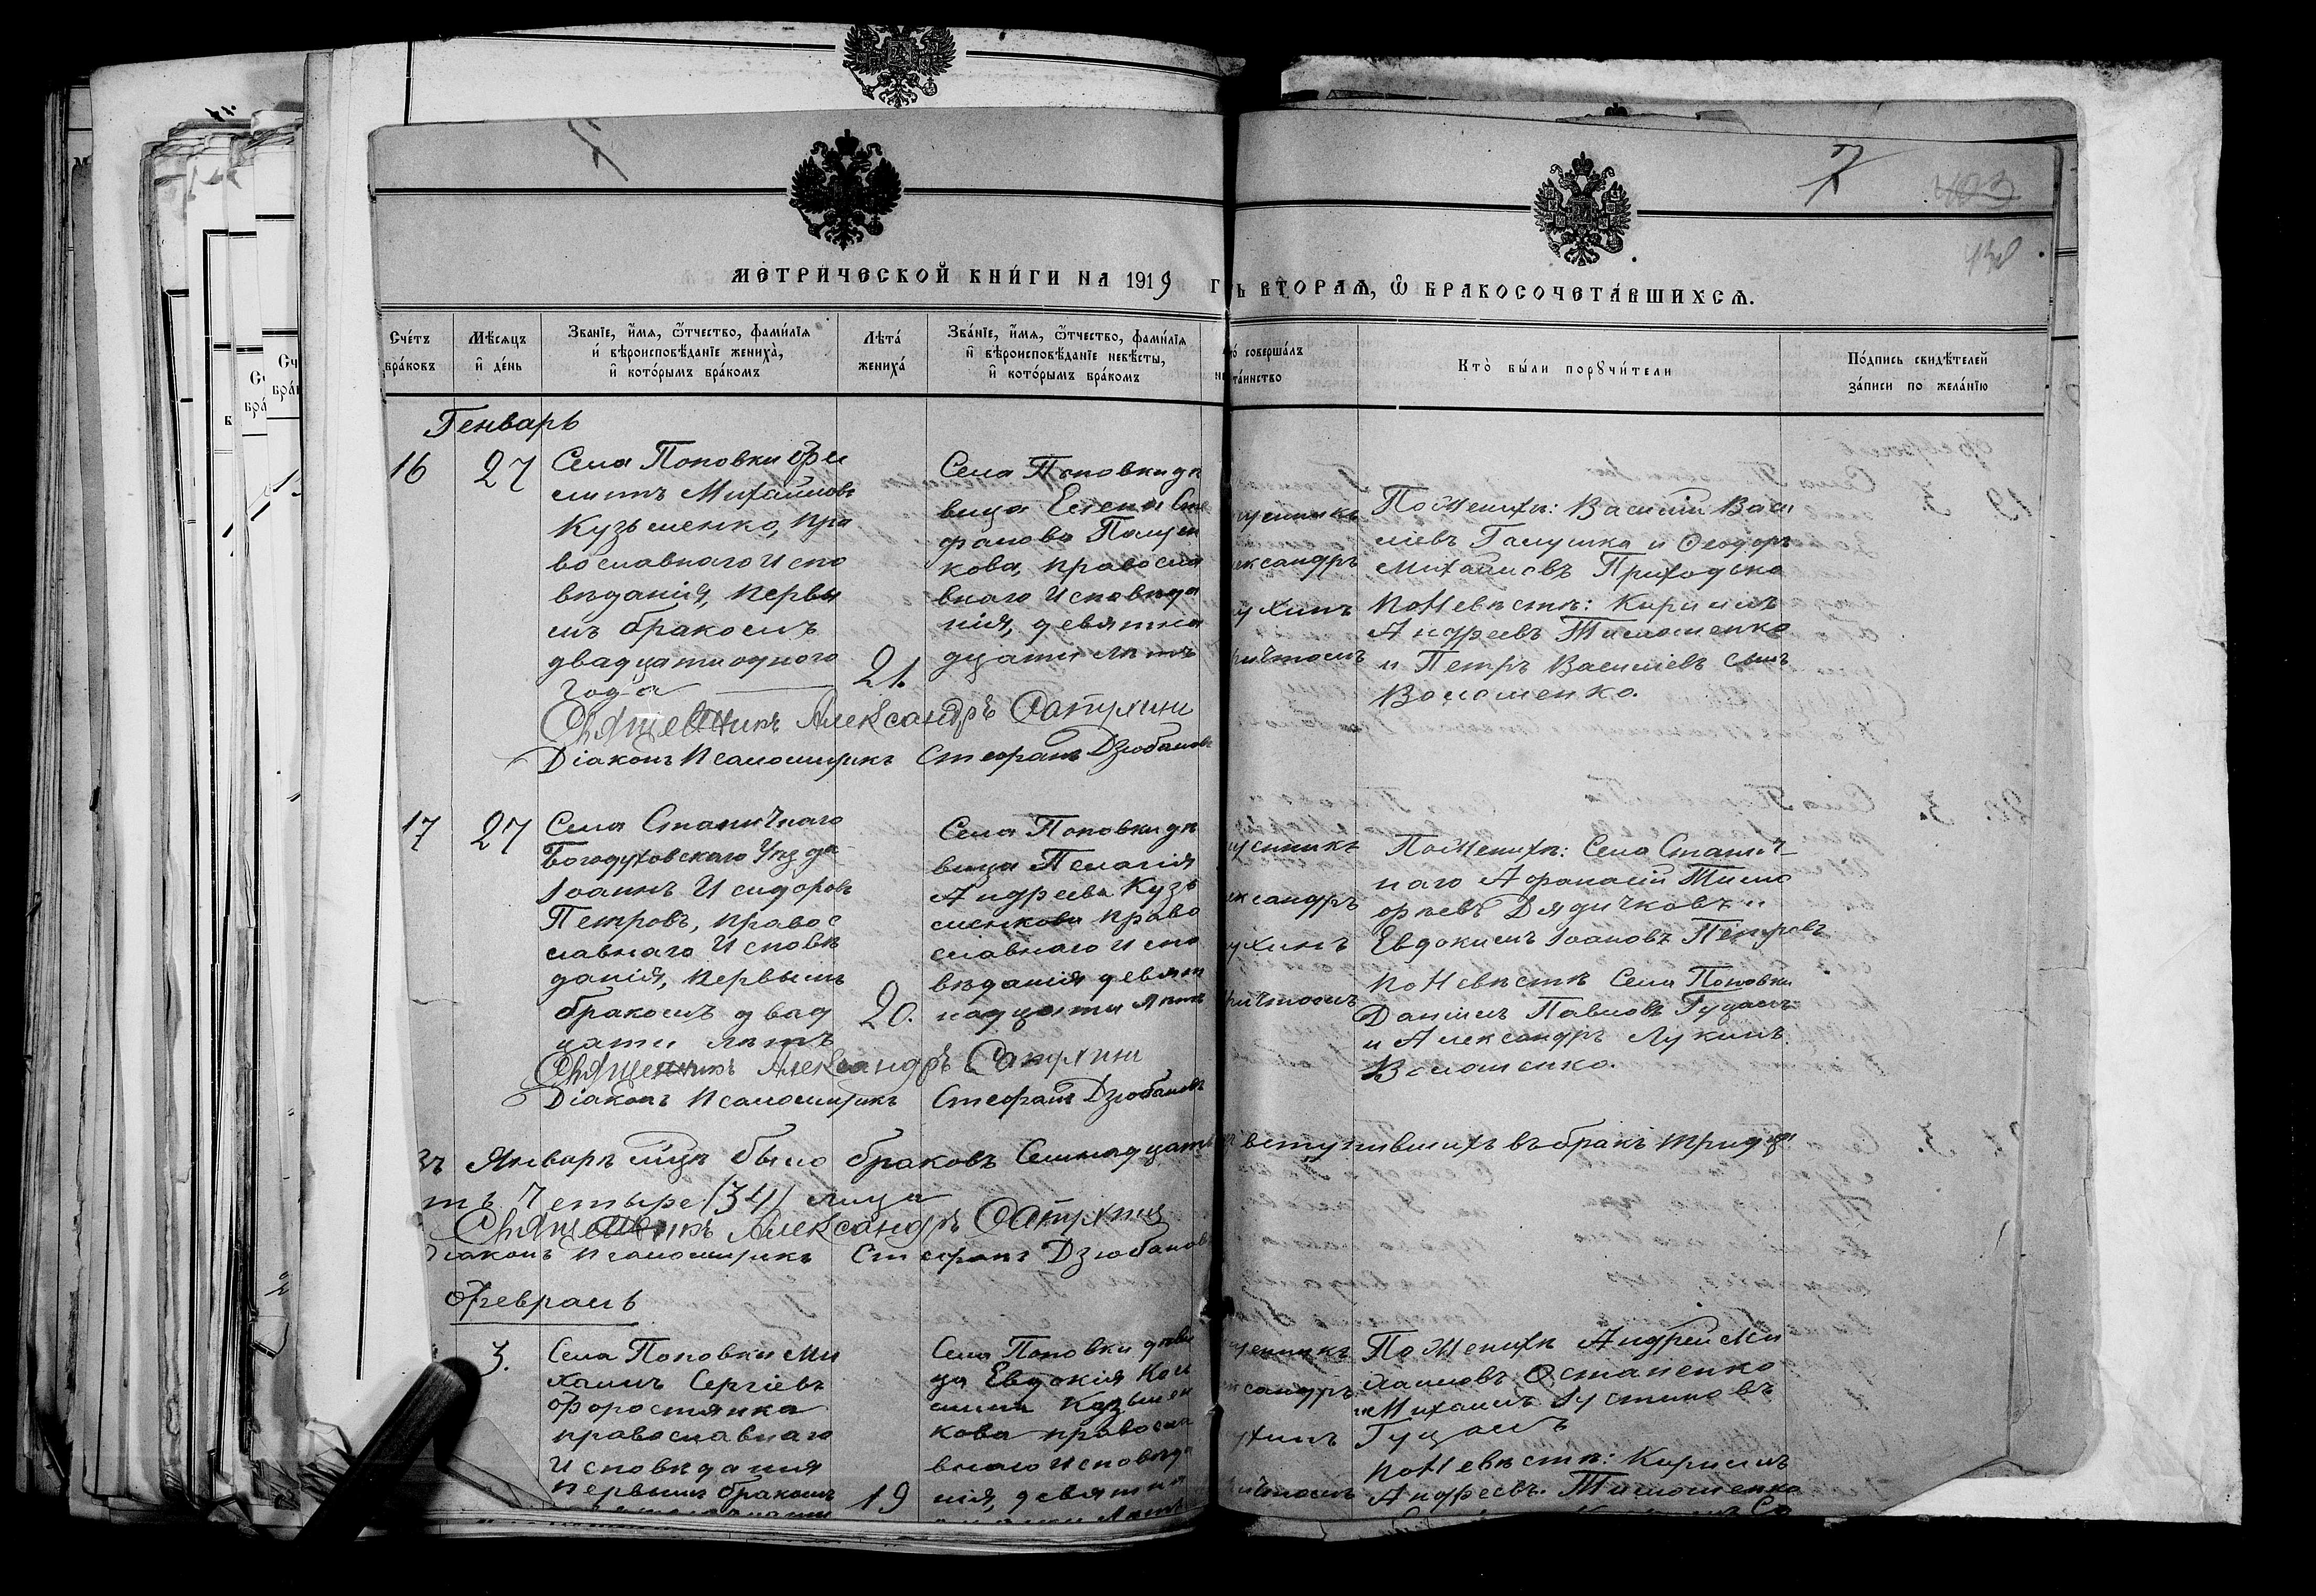 7
МЕТРИЧЕСКОЙ КНИГИ НА 1919 Г
Ь ВТОРАѦ, Ѿ БРАКОСОЧЕТАВШИХСѦ.
Счетъ браковъ
Мѣсяцъ и день
Званїе, имя, ѿтчество, фамилїя и вѣроисповѣданїе жениха, и которымъ бракомъ
Лѣта жениха
Званїе, имя, ѿтчество, фамилїя и вѣроисповѣданїе невѣсты, и которымъ бракомъ
совершалъ таинство
Кто были порꙋчители
Подпись свидѣтелей записи по желанїю
Генварь
16
27
Села Поповки Фи
липпъ Михаиловъ
Кузьменко, пра
вославнаго испо
вѣданія, первы
мъ бракомъ
двадцати одного
года
21.
Села Поповки дѣ
вица Елена Сте
фанова
кова, правосла
внаго исповѣда
нія, девятна
дцати лѣтъ
щенникъ
ександръ
ухинъ
ричтомъ
По Женихѣ: Василій Васи
ліевъ Галушка и Ѳеодоръ
Михаиловъ Приходько
По Невѣстѣ: Кириллъ
Андреевъ Тимошенко
и Петръ Василіевъ сынъ
Волошенко.
Священникъ Александръ Сатухинъ
Діаконъ Псаломщикъ Стефанъ Дзюбановъ
17
27
Села Станичнаго
Богодуховскаго Уѣзда
Іоаннъ Исидоровъ
Петровъ, правос
лавнаго исповѣ
данія, первымъ
бракомъ двад
цати лѣтъ
20.
Села Поповки дѣ
вица Пелагія
Андреева Кузь
менкова право
славнаго испо
вѣданія девят
надцати лѣтъ
щенникъ
ександръ
ухинъ
ричтомъ
По Женихѣ: Села Станич
наго Афанасій Тимо
фѣевъ Дядичковъ и
Евдокимъ Іоановъ Петровъ
По Невѣстѣ Села Поповки
Даніилъ Павловъ Гуцалъ
и Александръ Лукинъ
Волошенко.
Священникъ Александръ Сатухинъ
Діаконъ Псаломщикъ Стефанъ Дзюбановъ
Въ Январѣ мцѣ было браковъ Семнадцать вступившихъ въ бракъ тридца
ть четыре (34) лица
Священникъ Александръ Сатухинъ
Діаконъ Псаломщикъ Стефанъ Дзюбановъ
Февраль
3.
Села Поповки Ми
хаилъ Сергіевъ
Форостянка
православнаго
исповѣданія
первымъ бракомъ
19
Села Поповки дѣви
ца Евдокія
Козьмен
кова правосла
внаго исповѣда
нія, девятна
лѣтъ
щенникъ
ксандръ
ухинъ
ричтомъ
По Женихѣ Андрей Ми
хаиловъ Остапенко
и Михаилъ Іустиновъ
Гуцалъ
По Невѣстѣ: Кириллъ
Андреевъ Тимошенко